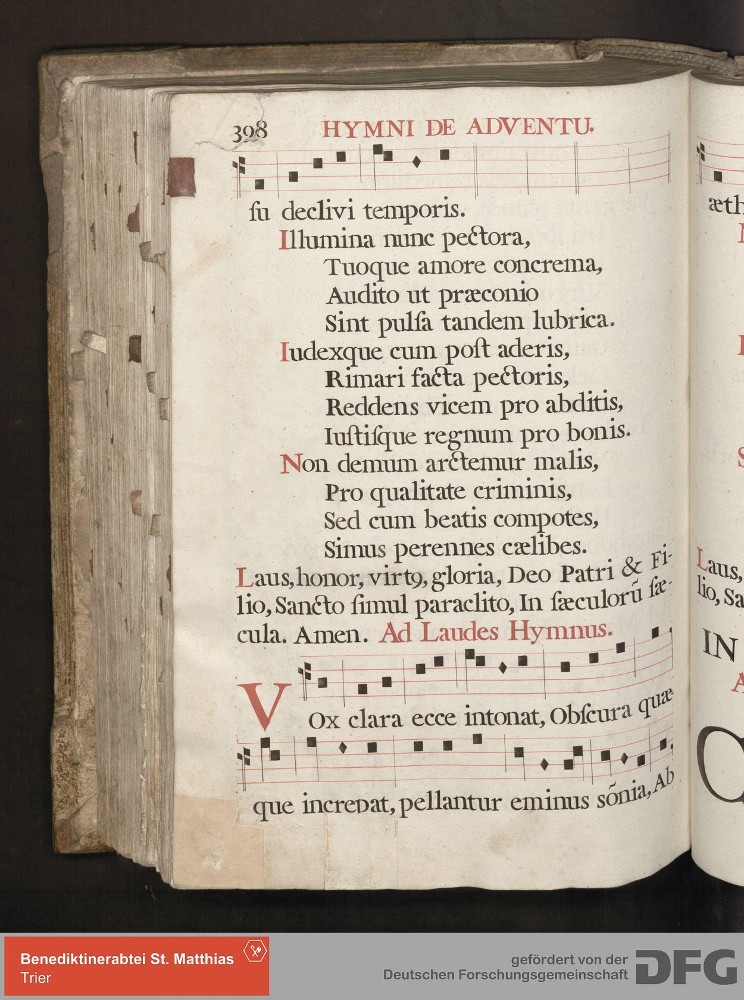 398 HYMNI DE ADVENTU.
ſu declivi temporis.
Illumina nunc pectora,
Tuoque amore concrema,
Audito ut præconio
Sint pulſa tandem lubrica.
Iudexque cum poſt aderis,
Rimari facta pectoris,
Reddens vicem pro abditis,
Iuſtiſque regnum pro bonis.
Non demum arctemur malis,
Pro qualitate criminis,
Sed cum beatis compotes,
Simus perennes cælibes.
Laus, honor, virtꝰ, gloria, Deo Patri & Fi-
lio, Sancto ſimul paraclito, In ſæculorũ ſæ-
cula. Amen. Ad Laudes Hymnus.
VOx clara ecce intonat, Obſcura quæ-
que increpat, pellantur eminus sõnia, Ab
æth
Laus,
lio, Sa
IN
Benediktinerabtei St. Matthias
Trier
gefördert von der
Deutschen Forschungsgemeinschaft
DFG